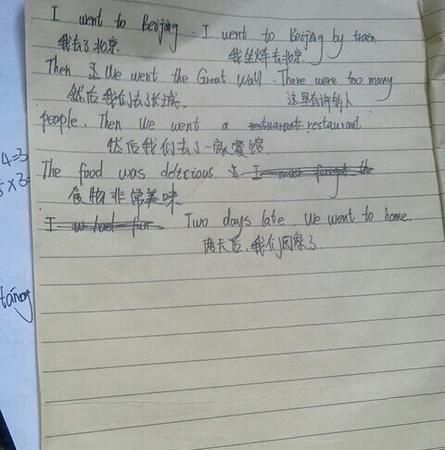 I went to Beijing. I went to Beijing by train
我去了北京 我坐火车去北京
Then We went the Great Wall. There were too many
然后我们去了长城. 这里有许多人
people. Then We went a restaurant
然后我们去了一家餐馆
The food was delicious.
食物非常美味
I had fun Two days late, We went to home.
两天后,我们回家了